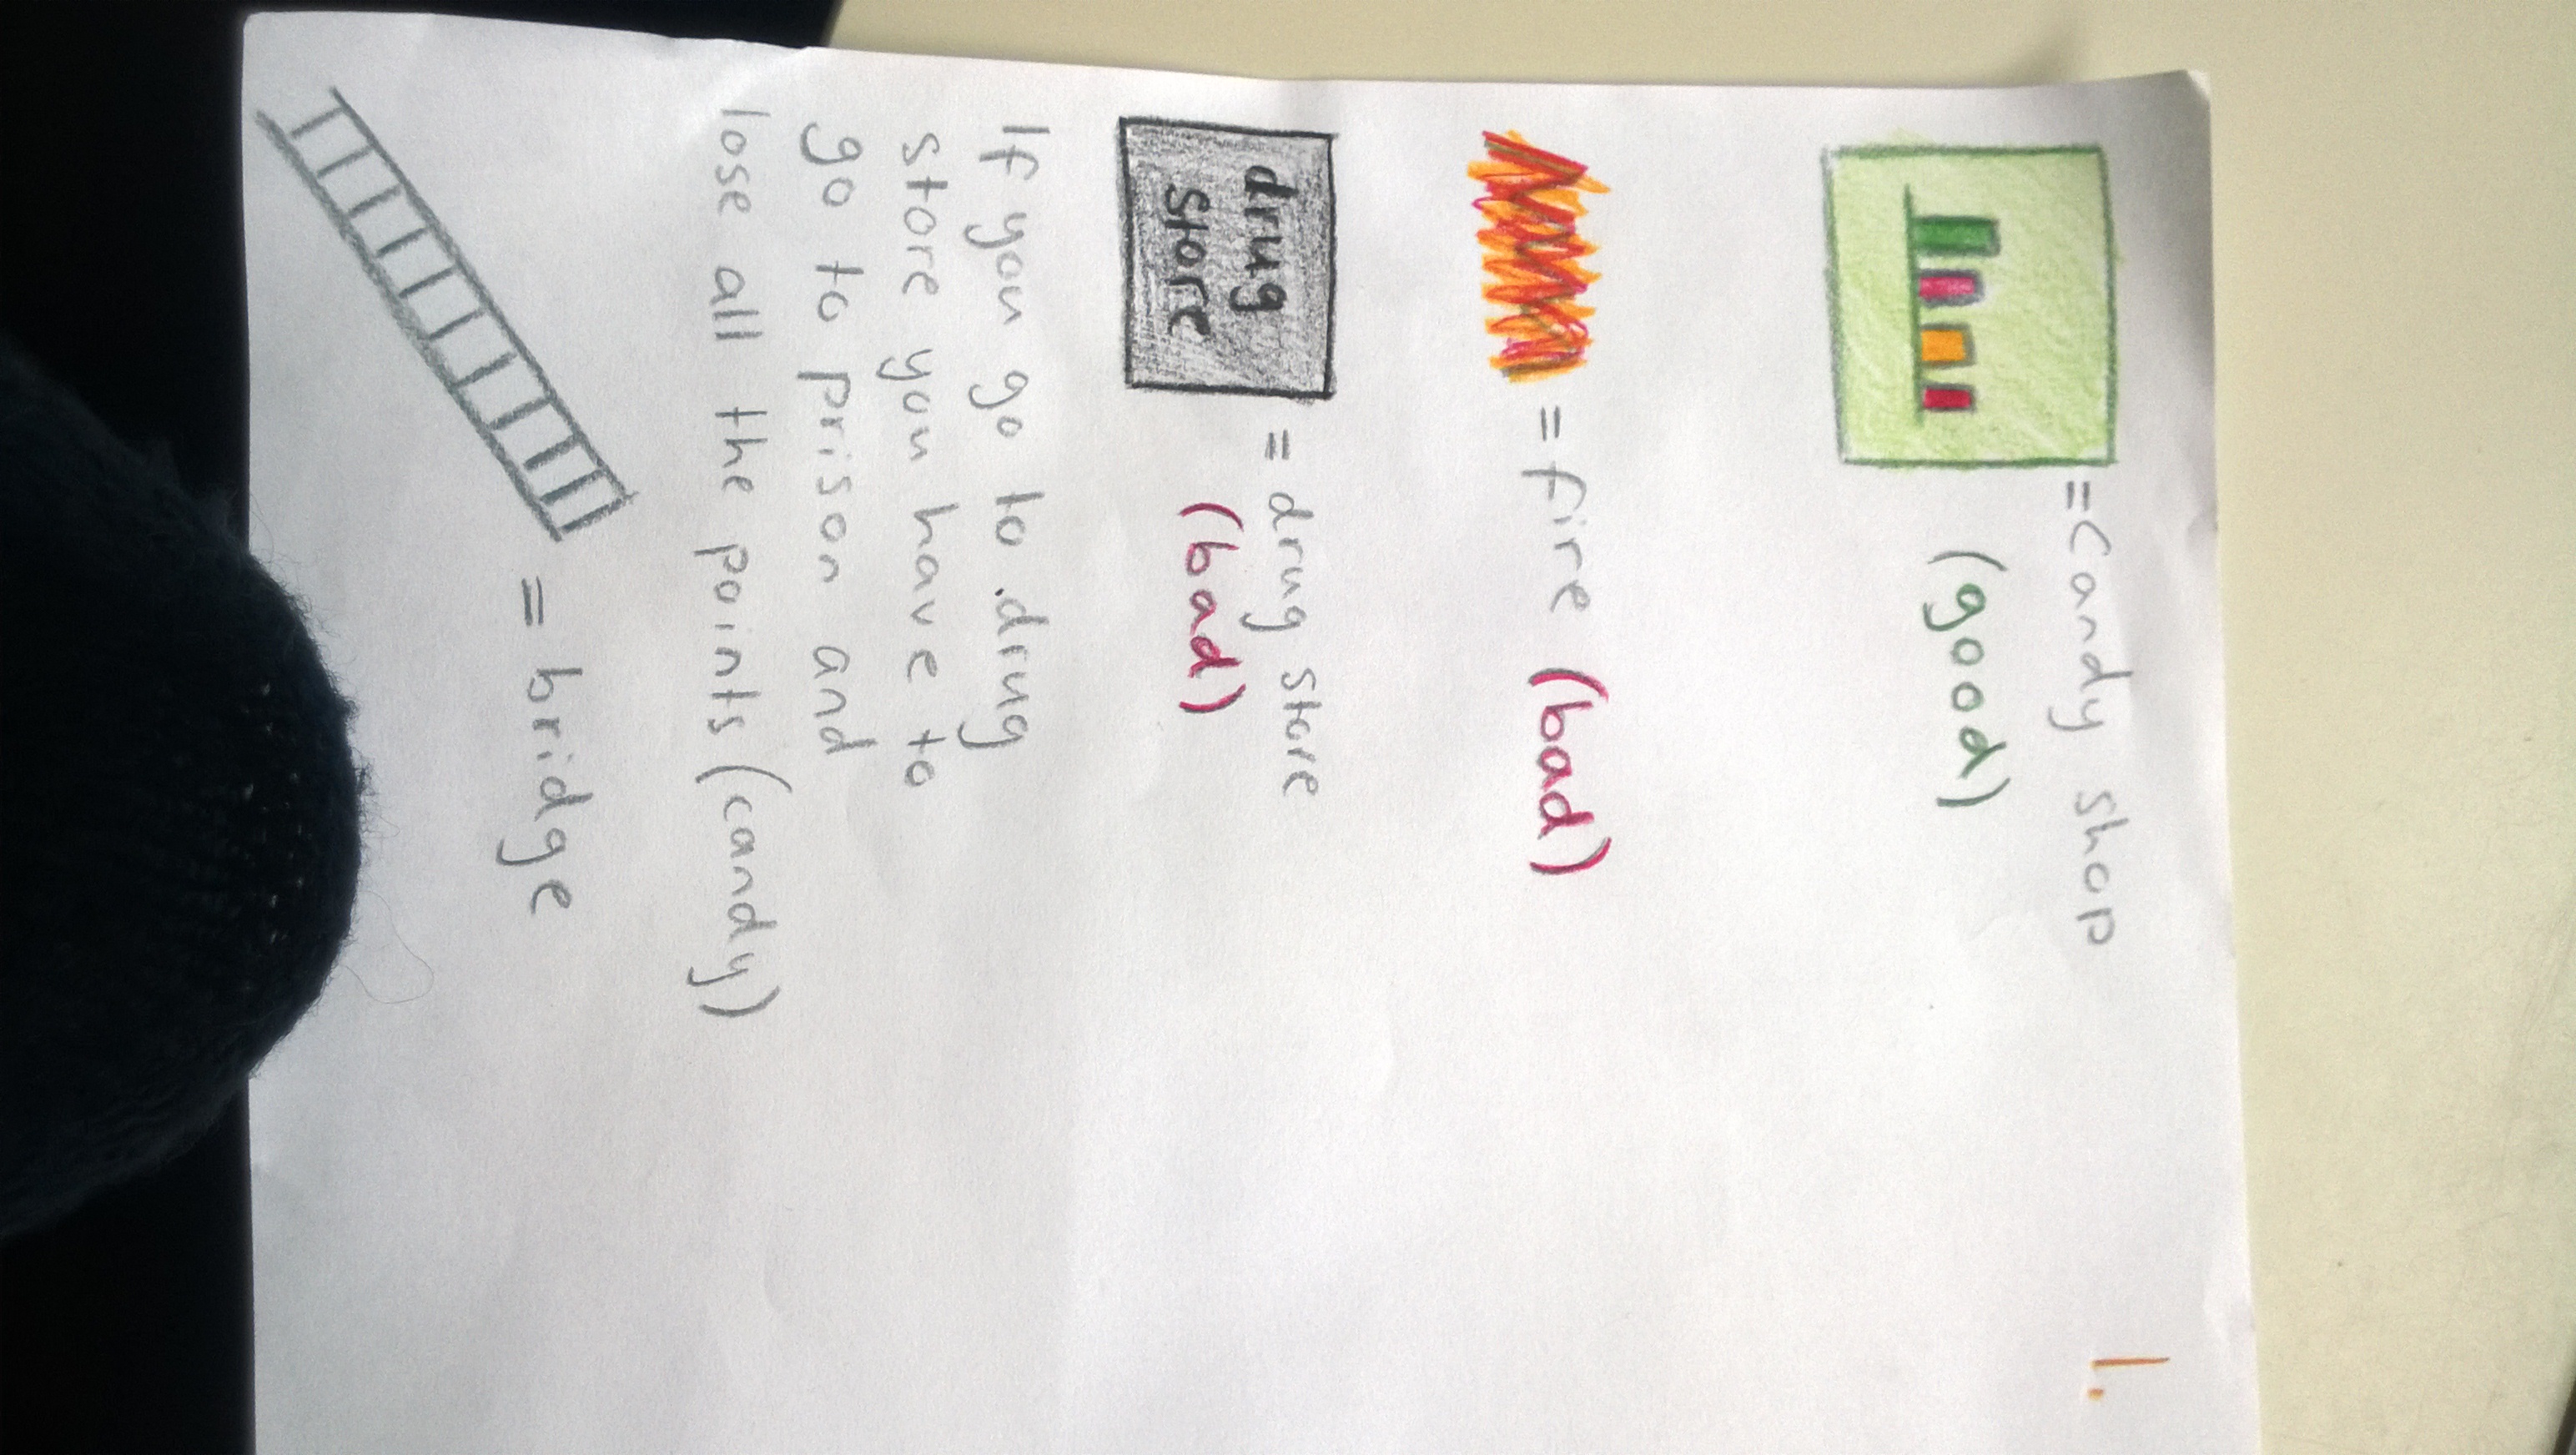 1.
=Candy shop
(good)
=fire (bad)
drug
store
= drug store
(bad)
If you go to drug
store you have to
go to prison and
lose all the points (candy)
= bridge